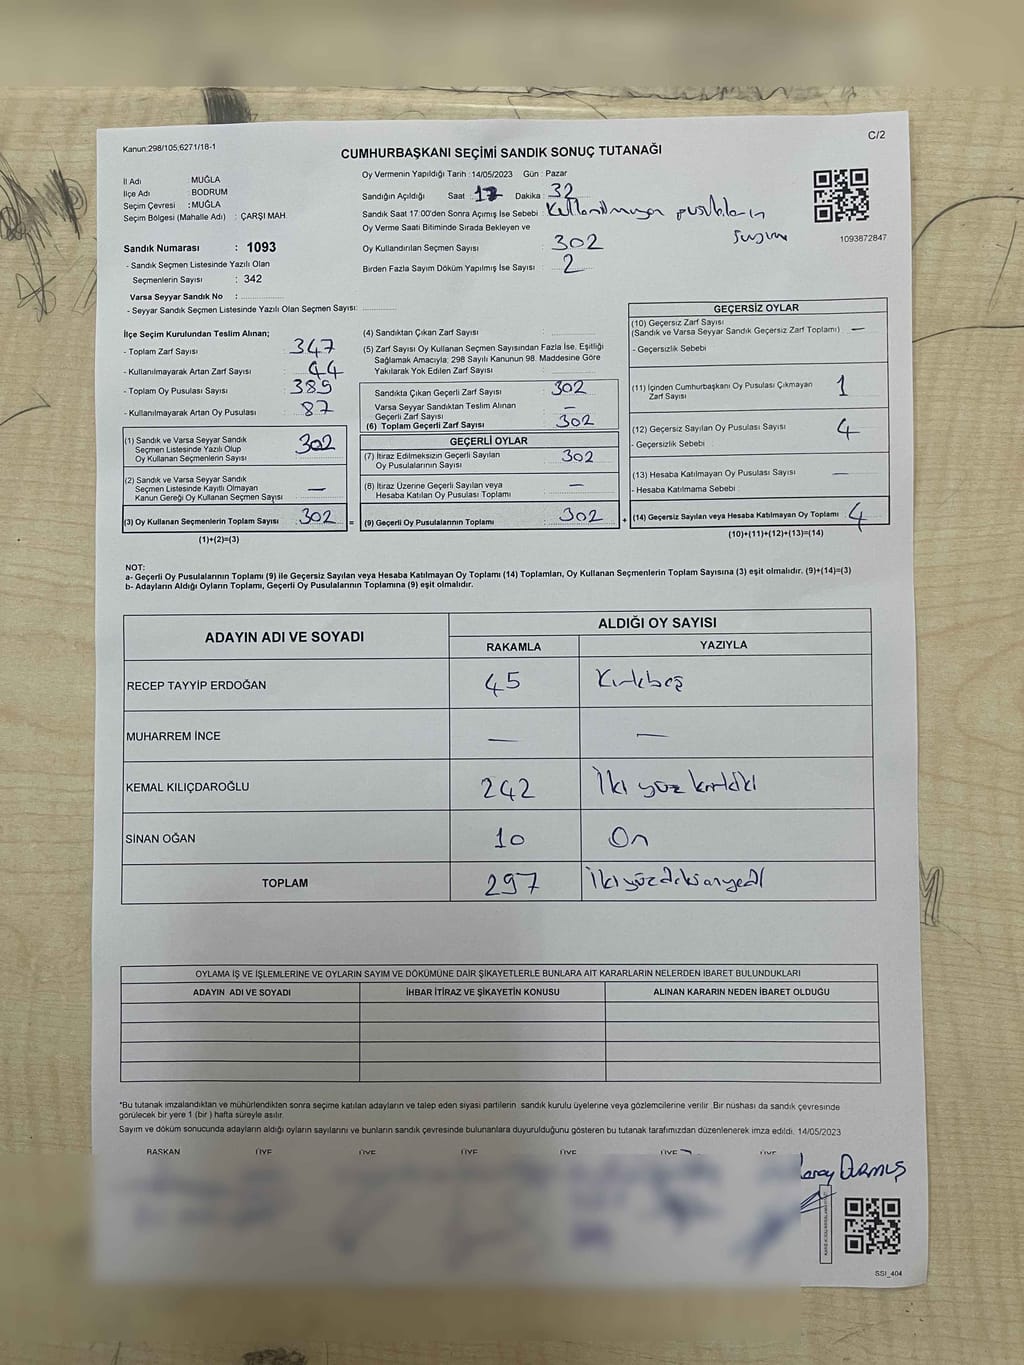 Kanun:298/105,6271/18-1
C/2
CUMHURBAŞKANI SEÇİMİ SANDIK SONUÇ TUTANAĞI
İl Adı : MUĞLA
İlçe Adı : BODRUM
Seçim Çevresi : MUĞLA
Seçim Bölgesi (Mahalle Adı) : ÇARŞI MAH.
Sandık Numarası : 1093
- Sandık Seçmen Listesinde Yazılı Olan
Seçmenlerin Sayısı : 342
Varsa Seyyar Sandık No :
- Seyyar Sandık Seçmen Listesinde Yazılı Olan Seçmen Sayısı:
Oy Vermenin Yapıldığı Tarih :14/05/2023 Gün : Pazar
Sandığın Açıldığı Saat : 17 Dakika : 32
Sandık Saat 17.00'den Sonra Açımış İse Sebebi : Kullanılmayan pusulaların
sayımı
Oy Verme Saati Bitiminde Sırada Bekleyen ve
Oy Kullandırılan Seçmen Sayısı : 302
Birden Fazla Sayım Döküm Yapılmış İse Sayısı : 2
1093872847
İlçe Seçim Kurulundan Teslim Alınan;
- Toplam Zarf Sayısı : 347
- Kullanılmayarak Artan Zarf Sayısı : 44
- Toplam Oy Pusulası Sayısı : 389
- Kullanılmayarak Artan Oy Pusulası : 87
(1) Sandık ve Varsa Seyyar Sandık
Seçmen Listesinde Yazılı Olup
Oy Kullanan Seçmenlerin Sayısı : 302
(2) Sandık ve Varsa Seyyar Sandık
Seçmen Listesinde Kayıtlı Olmayan
Kanun Gereği Oy Kullanan Seçmen Sayısı : —
(3) Oy Kullanan Seçmenlerin Toplam Sayısı : 302
(1)+(2)=(3)
=
(4) Sandıktan Çıkan Zarf Sayısı :
(5) Zarf Sayısı Oy Kullanan Seçmen Sayısından Fazla İse, Eşitliği
Sağlamak Amacıyla; 298 Sayılı Kanunun 98. Maddesine Göre
Yakılarak Yok Edilen Zarf Sayısı :
Sandıkta Çıkan Geçerli Zarf Sayısı : 302
Varsa Seyyar Sandıktan Teslim Alınan
Geçerli Zarf Sayısı : —
(6) Toplam Geçerli Zarf Sayısı : 302
GEÇERLİ OYLAR
(7) İtiraz Edilmeksizin Geçerli Sayılan
Oy Pusulalarının Sayısı : 302
(8) İtiraz Üzerine Geçerli Sayılan veya
Hesaba Katılan Oy Pusulası Toplamı : —
(9) Geçerli Oy Pusulalarının Toplamı : 302
+
GEÇERSİZ OYLAR
(10) Geçersiz Zarf Sayısı
(Sandık ve Varsa Seyyar Sandık Geçersiz Zarf Toplamı) : —
- Geçersizlik Sebebi :
(11) İçinden Cumhurbaşkanı Oy Pusulası Çıkmayan
Zarf Sayısı : 1
(12) Geçersiz Sayılan Oy Pusulası Sayısı : 4
- Geçersizlik Sebebi :
(13) Hesaba Katılmayan Oy Pusulası Sayısı : —
- Hesaba Katılmama Sebebi :
(14) Geçersiz Sayılan veya Hesaba Katılmayan Oy Toplamı : 4
(10)+(11)+(12)+(13)=(14)
NOT:
a- Geçerli Oy Pusulalarının Toplamı (9) ile Geçersiz Sayılan veya Hesaba Katılmayan Oy Toplamı (14) Toplamları, Oy Kullanan Seçmenlerin Toplam Sayısına (3) eşit olmalıdır. (9)+(14)=(3)
b- Adayların Aldığı Oyların Toplamı, Geçerli Oy Pusulalarının Toplamına (9) eşit olmalıdır.
ADAYIN ADI VE SOYADI
ALDIĞI OY SAYISI
RAKAMLA YAZIYLA
RECEP TAYYİP ERDOĞAN 45 Kırkbeş
MUHARREM İNCE — —
KEMAL KILIÇDAROĞLU 242 İki yüz kırkiki
SİNAN OĞAN 10 On
TOPLAM 297 İki yüz doksanyedi
OYLAMA İŞ VE İŞLEMLERİNE VE OYLARIN SAYIM VE DÖKÜMÜNE DAİR ŞİKAYETLERLE BUNLARA AİT KARARLARIN NELERDEN İBARET BULUNDUKLARI
ADAYIN ADI VE SOYADI İHBAR İTİRAZ VE ŞİKAYETİN KONUSU ALINAN KARARIN NEDEN İBARET OLDUĞU
*Bu tutanak imzalandıktan ve mühürlendikten sonra seçime katılan adayların ve talep eden siyasi partilerin sandık kurulu üyelerine veya gözlemcilerine verilir. Bir nüshası da sandık çevresinde
görülecek bir yere 1 (bir) hafta süreyle asılır.
Sayım ve döküm sonucunda adayların aldığı oyların sayılarını ve bunların sandık çevresinde bulunanlara duyurulduğunu gösteren bu tutanak tarafımızdan düzenlenerek imza edildi. 14/05/2023
BAŞKAN ÜYE ÜYE ÜYE ÜYE ÜYE ÜYE
DURMUŞ
SSI_404